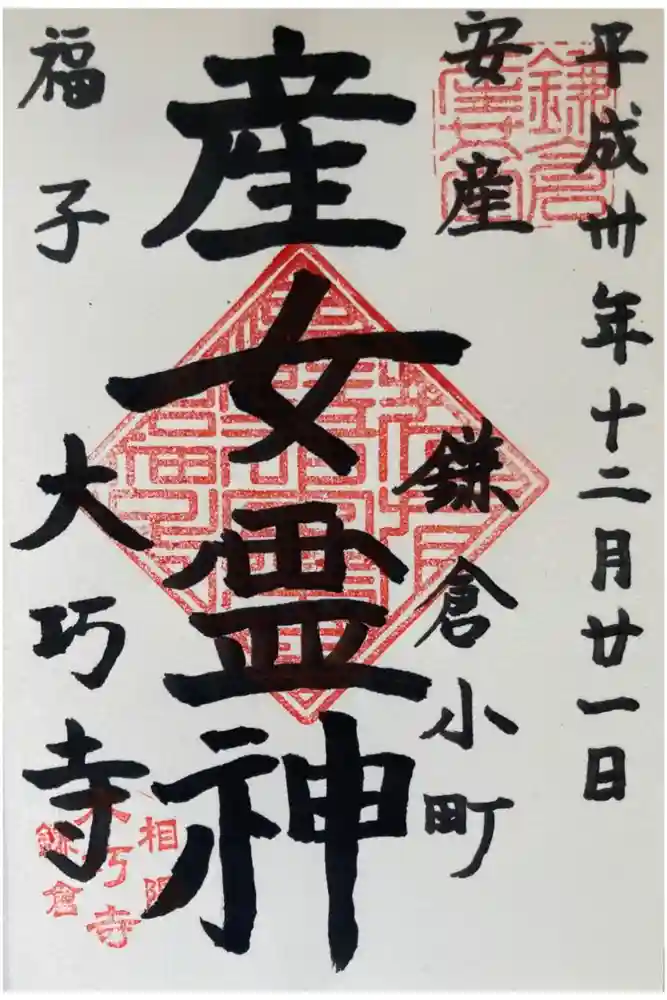 平成卅年十二月廿一日
安産
鎌倉小町
産女霊神
福子
大巧寺
鎌倉
相
大巧寺
鎌倉